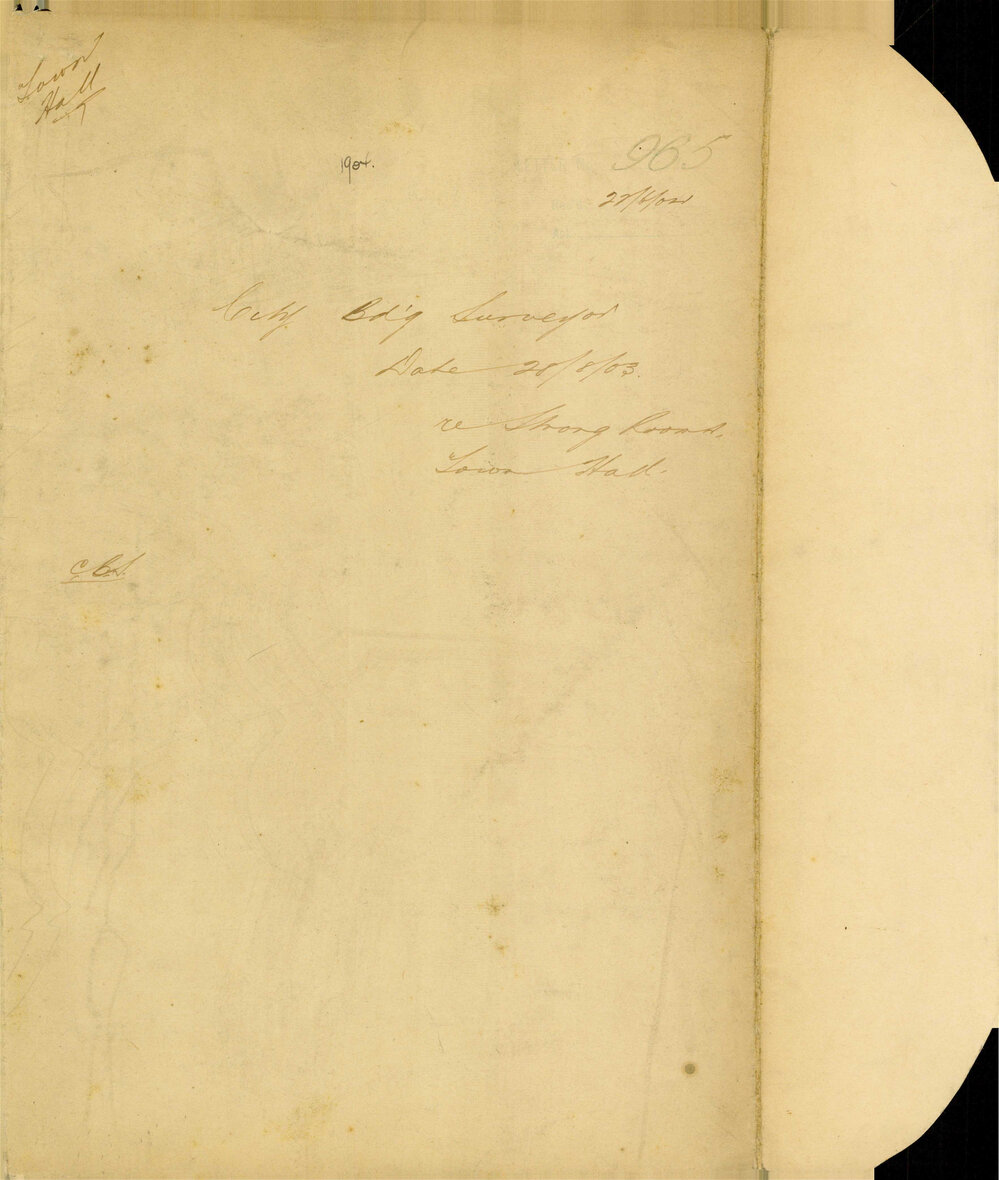 Town
Hall
1904.
965
City Bd'g Surveyor
Date 28/8/03.
re Strong Rooms,
Town Hall.
C.B.S.